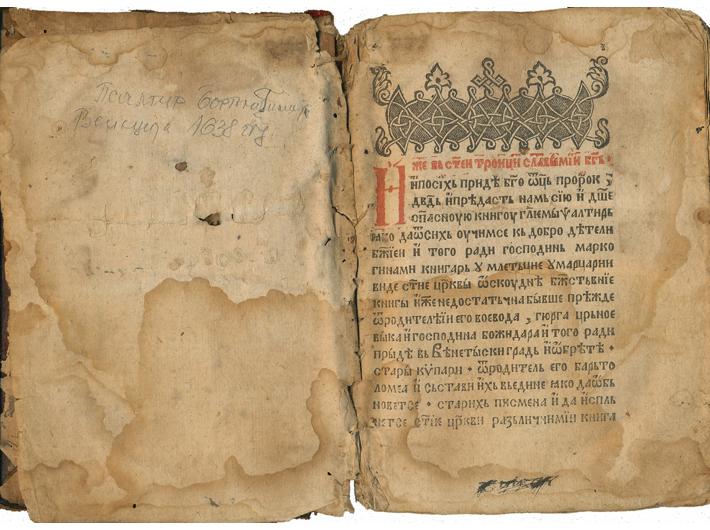 Псалтир
Венеција 1638 год
же въ стѣи трои҆ци славимїи бг҃ъ
и҆ посїхь приде бг҃о ѿц҃ь пророк
двд҃ь и҆ предасть намь сїю и҆ дш҃е
спасноую книгоу гл҃емы ѱалтирь
ꙗко да ѿ сихь оучимсе кь добро дѣтели
бж҃їеи и҆ того ради господинь марко
гинами книгарь у млетьцие у марцарии
виде ст҃ие цр҃квы ѿскоудиѣ бж҃стьвние
книгы и҆же недостатьчна бывше прѣжде
ѿ родителѣи его воевода , гюрга црьное
выка и҆ господина божидара и҆ того ради
прыде вь венетыски градь и҆ ѡ҆брѣте •
стары кѵпари • ѿ родитель его барьто
ломеа и҆ сьстави и҆хь вьедине ꙗко да ѡбь
новетсе • старихь писмена и҆ да исплъ
нетсе ст҃їе цр҃кви разьличчимїи книга